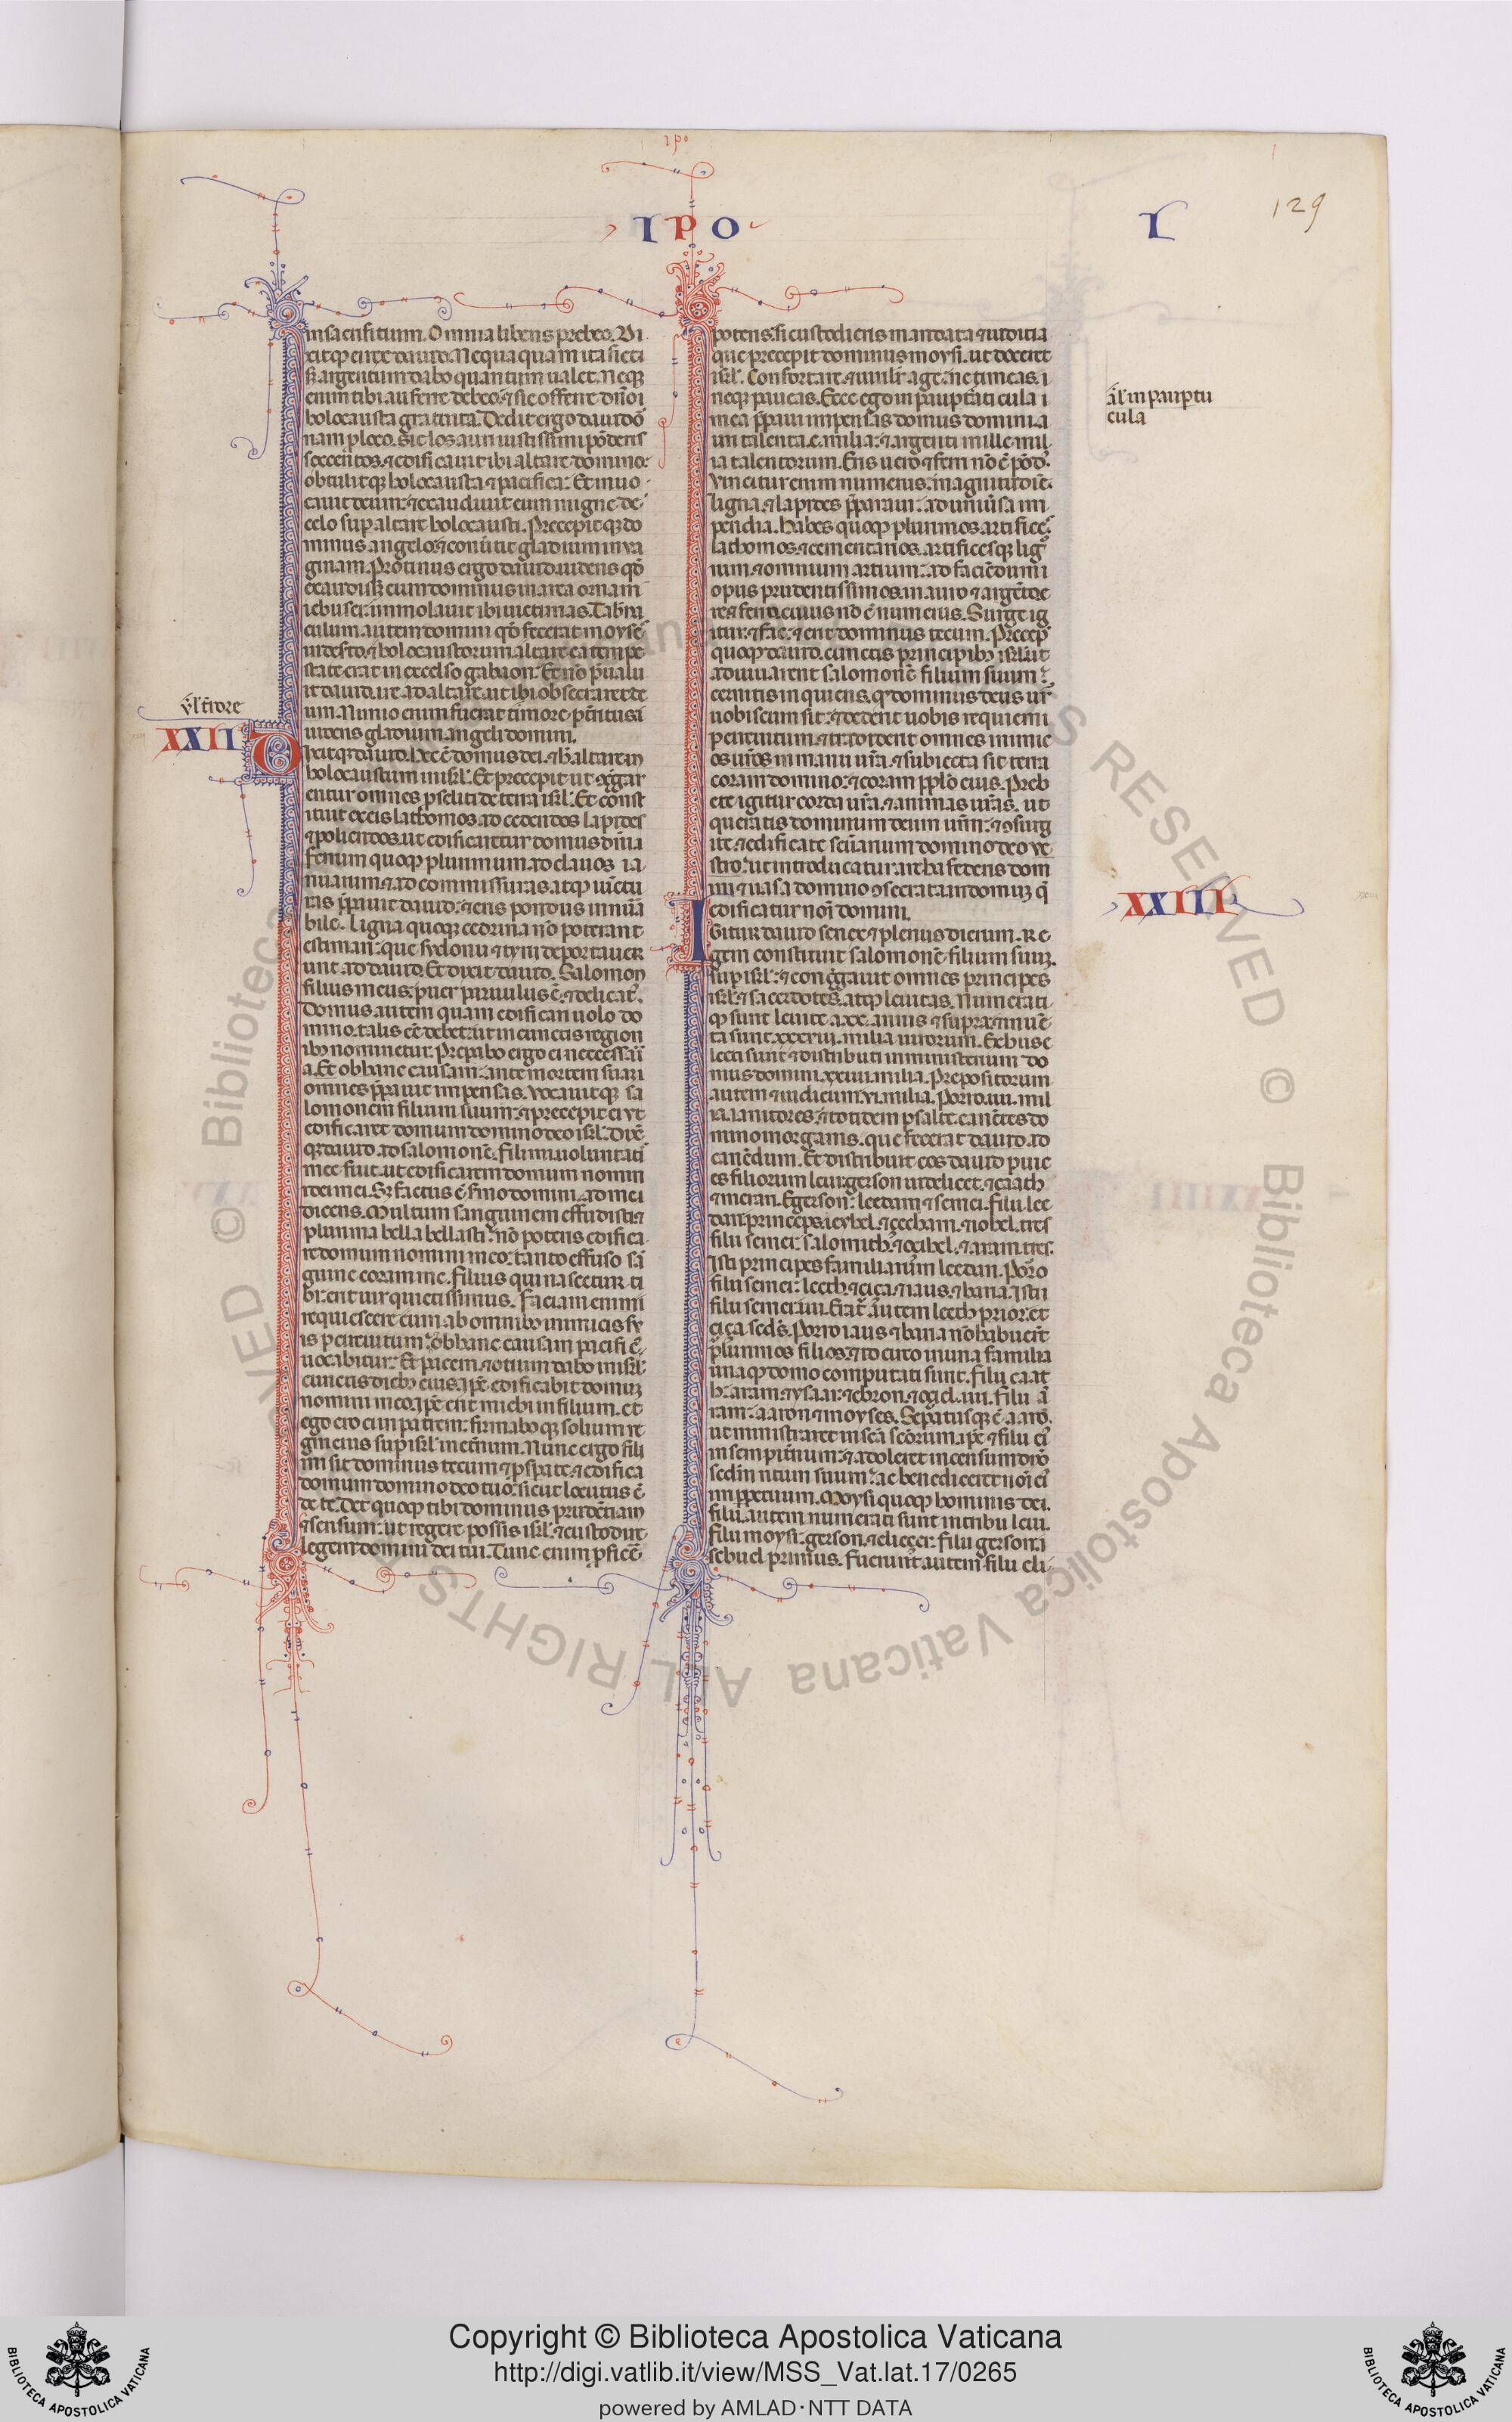 ipo
IPO
L
129
in sacrifitium. Omnia libens prebeo. Di
xitq; ei rex dauid. Nequaquam ita fiet
s; argentum dabo quantum ualet. Neq;
enim tibi auferre debeo: ⁊ sic offerre dño
holocausta gratuita. Dedit ergo dauid
sexcentos. ⁊ edificauit ibi altare domino:
obtulitq; holocausta ⁊ pacifica. Et inuo
cauit deum: ⁊ exaudiuit eum in igne de
celo sup altare holocausti. Precepitq; do
minus angelo: ⁊ conũtit gladium in ua
ginam. Protinus ergo dauid uidens qđ
iebusei: immolauit ibi uictimas. Tab̃na
culum autem domini qđ fecerat moyses
state erat in excelso gabaon. Et nõ p̃ualu
it dauid ire ad altare. ut ibi obsecraret de
um. Nimio enim fuerat timore p̃territus
uidens gladium angeli domini.
ul' timore
XXII
Dixitq; dauid. Hec ẽ domus dei. ⁊ h̃ altare in
holocaustum isrl'. Et precepit ut ↄg̃gar
entur omnes pseliti de terra isrl'. Et const
ituit ex eis lathomos ad cedendos lapides
⁊ poliendos. ut edificaretur domus dñi.
ferrum quoq; plurimum ad clauos ia
nuarum ⁊ ad commissuras atq; iũctu
ras p̃parauit dauid: ⁊ eris pondus innũa
bile. Ligna quoq; cedrina nõ poterant
estimari: que sydonii ⁊ tyrii deportauer
unt ad dauid. Et dixit dauid. Salomon
filius meus. puer paruulus ẽ. ⁊ delicat'.
Domus autem quam edificari uolo do
mino. talis eẽ debet: ut in cunctis region
ib; nominetur. Prepabo ergo ei necessari
a. Et ob hanc causam: ante mortem suam
omnes p̃parauit impensas. Vocauitq; sa
lomonem filium suum: ⁊ precepit ei ut
edificaret domum domino deo isrl'. Dix̃
q; dauid ad salomonẽ. fili mi. uoluntati
mee fuit. ut edificarem domum nomin
i dei mei. S; factus ẽ sermo domini ad me
dicens. Multum sanguinem effudisti ⁊
plurima bella bellasti: nõ potens edifica
re domum nomini meo: tanto effuso sã
guine coram me. Filius qui nascetur ti
bi: erit uir quietissimus. Faciam enim
requiescere eum ab omnib; inimicis su
is p circuitum: ob hanc causam pacific'
uocabitur. Et pacem ⁊ otium dabo in isrl'
cunctis dieb; eius. ip̃e edificabit domum
nomini meo. ip̃e erit michi in filium. et
ego ero ei in patrem: firmaboq; solium re
gni eius sup isrl' in et̃num. Nunc ergo fili
mi sit dominus tecum ⁊ p̃spare. ⁊ edifica
domum domino deo tuo: sicut locutus ẽ
de te. Det quoq; tibi dominus prudẽtiam
⁊ sensum: ut regere possis isrl'. ⁊ custodire
legem domini dei tui. Tunc enim p̃ficẽ
potens: si custodieris mandata ⁊ iuditia
que precepit dominus moysi. ut doceret
isrl'. Confortare. ⁊ uirilit' age. ne timeas.
neq; paueas. Ecce ego in paup̃tati cula
mea p̃paui impensas domus domini. a
uri talenta .c. milia: ⁊ argenti mille mil
ia talentorum. Eris uero ⁊ ferri nõ ẽ põd'.
Vincitur enim numerus. magnitudiẽ.
ligna ⁊ lapides p̃paraui: ad uniũsa im
pendia. Habes quoq; plurimos artifices.
lathomos ⁊ cementarios. artificesq; lig
norum. ⁊ omnium artium: ad faciẽdum
opus prudentissimos in auro ⁊ argẽto. e
re ⁊ ferro cuius nõ ẽ numerus. Surge ig
itur. ⁊ fac. ⁊ erit dominus tecum. Precep
quoq; dauid. cunctis principib; isrl'. ut
adiuuarent salomonẽ filium suum.
cernitis inquiens. q̃ dominus deus ur̃
uobiscum sit: ⁊ dederit uobis requiem
p circuitum. ⁊ tradiderit omnes inimic
os ur̃os in manu ur̃a. ⁊ subiecta sit terra
coram domino: ⁊ coram pplo eius. Preb
ete igitur corda ur̃a. ⁊ animas ur̃as. ut
queratis dominum deum ur̃m: ⁊ ↄsurg
ite. ⁊ edificate sc̃uarium domino deo ue
stro: ut introducatur archa federis dom
ini ⁊ uasa domino ↄsecrata. in domum q̃
edificatur noĩ domini.
al' in paup̃tu
cula
XXIII
Igitur dauid senex ⁊ plenus dierum. Re
gem constituit salomonẽ filium suum.
sup isrl': ⁊ congg̃auit omnes principes
isrl'. ⁊ sacerdotes. atq; leuitas. Numerati
q; sunt leuite a .xx. annis ⁊ supra: ⁊ inuẽ
ta sunt .xxxviii. milia uirorum. Ex his e
lecti sunt ⁊ distributi in ministerium do
mus domini .xxiiii. milia. Prepositorum
autem ⁊ iudicum .vi. milia. Porro .iiii. mil
ia ianitores. ⁊ totidem psalte. canẽtes do
mino in organis. que fecerat dauid. ad
canẽdum. Et distribuit eos dauid p uic
es filiorum leui: gerson uidelicet. ⁊ caath
⁊ merari. Et gerson: leedan. ⁊ semei. Filii lee
dan: princeps ieyhel. ⁊ cethan. ⁊ iohel. tres
filii semei: salomith. ⁊ ozihel. ⁊ aram. tres.
Isti principes familiarũm leedan. Porro
filii semei: leeth. ⁊ ciça. ⁊ iaus. ⁊ bana. Isti
filii semei: iiii. Erat autem leeth prior. et
ciça sed's. Porro iaus ⁊ bana nõ habuer̃t
plurimos filios. ⁊ idcirco in una familia
unaq; domo computati sunt. Filii caat
h: aram. ⁊ ysaar. ⁊ ebron. ⁊ oziel. iiii. Filii ã
ram: aaron ⁊ moyses. Sep̃atusq; ẽ aarõ.
ut ministraret in sc̃a sc̃orum. ip̃e ⁊ filii ei'
in sempit̃num: ⁊ adoleret incensum dño
sedm ritum suum: ac benediceret noĩ ei'
in pp̃etuum. Moysi quoq; hominis dei.
filii autem numerati sunt in tribu leui.
Filii moysi: gerson. ⁊ elieçer. Filii gerson:
sebuel primus. Fuerunt autem filii eli
Copyright © Biblioteca Apostolica Vaticana
http://digi.vatlib.it/view/MSS_Vat.lat.17/0265
powered by AMLAD·NTT DATA
BIBLIOTECA APOSTOLICA VATICANA
BIBLIOTECA APOSTOLICA VATICANA